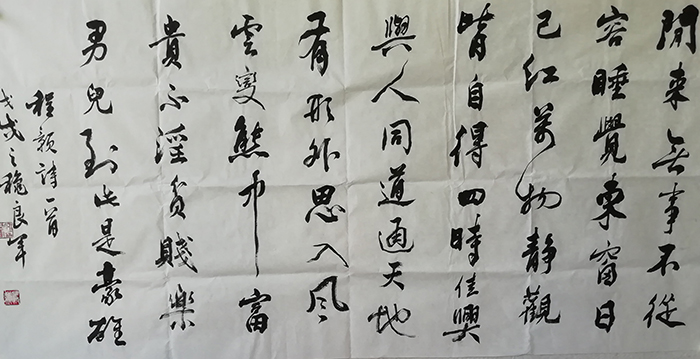 閒來無事不從
容睡覺東窗日
已紅萬物靜觀
皆自得四時佳興
與人同道通天地
有形外思入風
雲變態中富
貴不淫貧賤樂
男兒到此是豪雄
程顥詩一首
戊戌之穐良軍